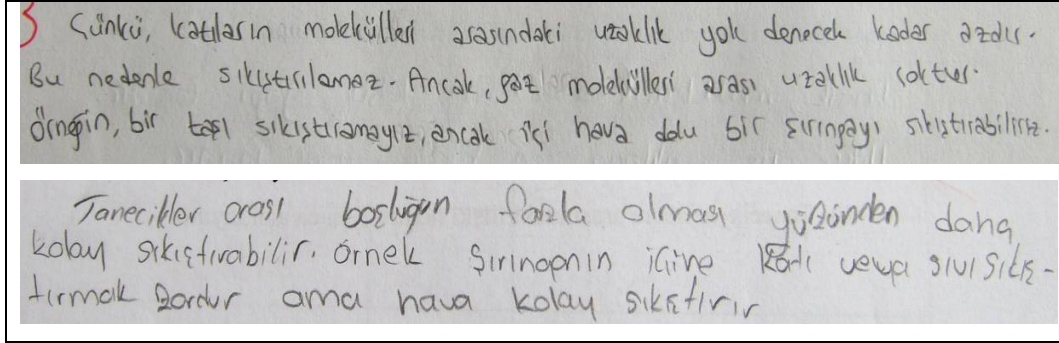 3 Çünkü, katıların molekülleri arasındaki uzaklık yok denecek kadar azdır.
Bu nedenle sıkıştırılamaz. Ancak, gaz molekülleri arası uzaklık çoktur.
Örneğin, bir taşı sıkıştıramayız, ancak içi hava dolu bir şırıngayı sıkıştırabiliriz.
Tanecikler arası boşluğun fazla olması yüzünden daha
kolay sıkıştırabilir. örnek Şırınganın içine katı veya sıvı sıkış-
tırmak zordur ama hava kolay sıkıştırır